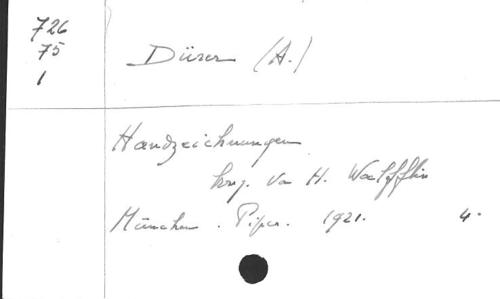 726
75
1
Dürer (A.)
Handzeichnungen
hrsg. von H. Woelfflin
München. Piper. 1921. 4.